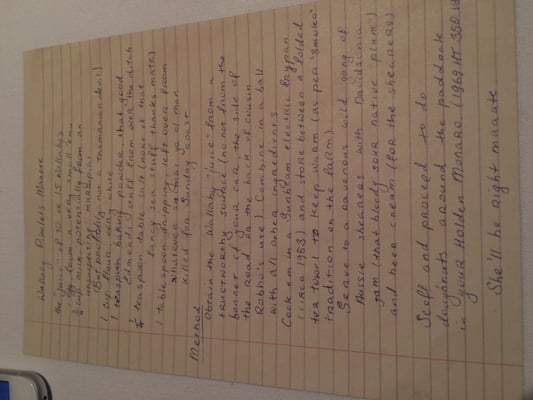 Wallaby Pikelets Monaro
the "juice" of 10 to 15 Wallaby's
1 egg from a very small emu
½ cup milk potentially from an
unsuspecting marsupial
(But probably not a Tasmanian devil)
1 cup flour very white
1 teaspoon baking powder that good
Edmonds stuff from over the ditch
¼ teaspoon table salt (none of that
fancy sea stuff thanks mate)
1 tablespoon dripping left over from
whatever animal ya ol man
killed for Sunday roast
Method
Obtain the Wallaby "juice" from a
trustworthy source (no not from the
bonnet of your car, the side of
the road or the back of cousin
Robbo's ute) Combine in a ball
with all other ingredients
Cook em in a Sunbeam electric frypan
(circa 1953) and store between a folded
tea towel to keep warm (as per "smoko"
tradition on the farm)
Serve to a ravenous wild gang of
Aussie shearers with Davidsonia
jam (that bloody sour native plum)
and beer cream (for the shearers)
Scoff and proceed to do
doughnuts around the paddock
in your Holden Monaro (1969 HT 350 V8
She'll be right maaate